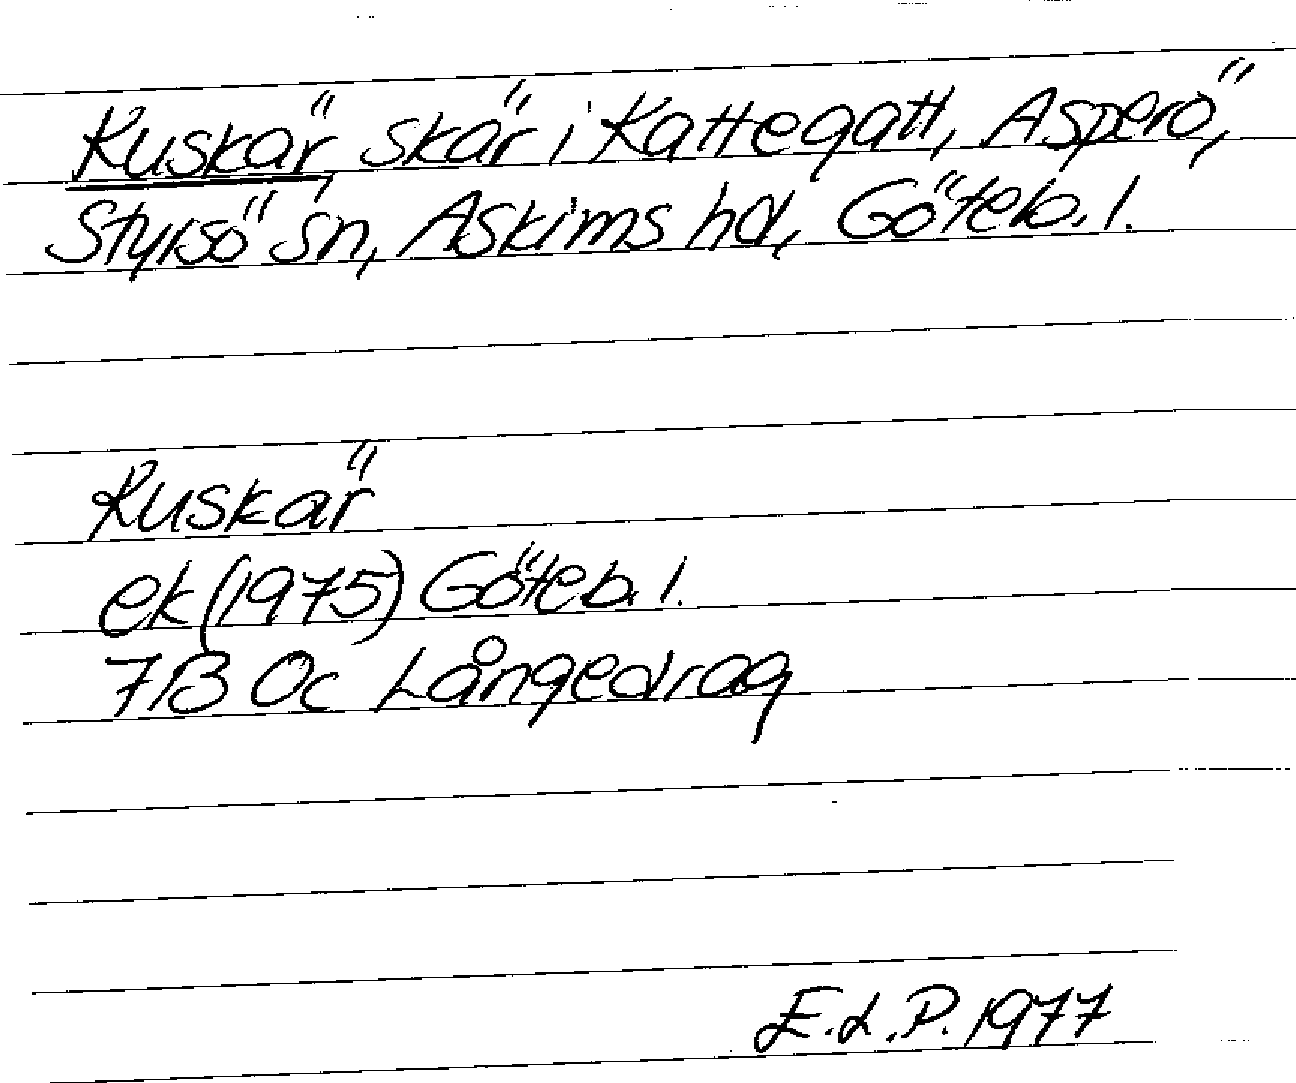 Kuskär, skär i Kattegatt, Asperö,
Styrsö sn, Askims hd, Göteb. l.
Kuskär
ek (1975) Göteb. l.
7B 0c Långedrag
E.L.P. 1977